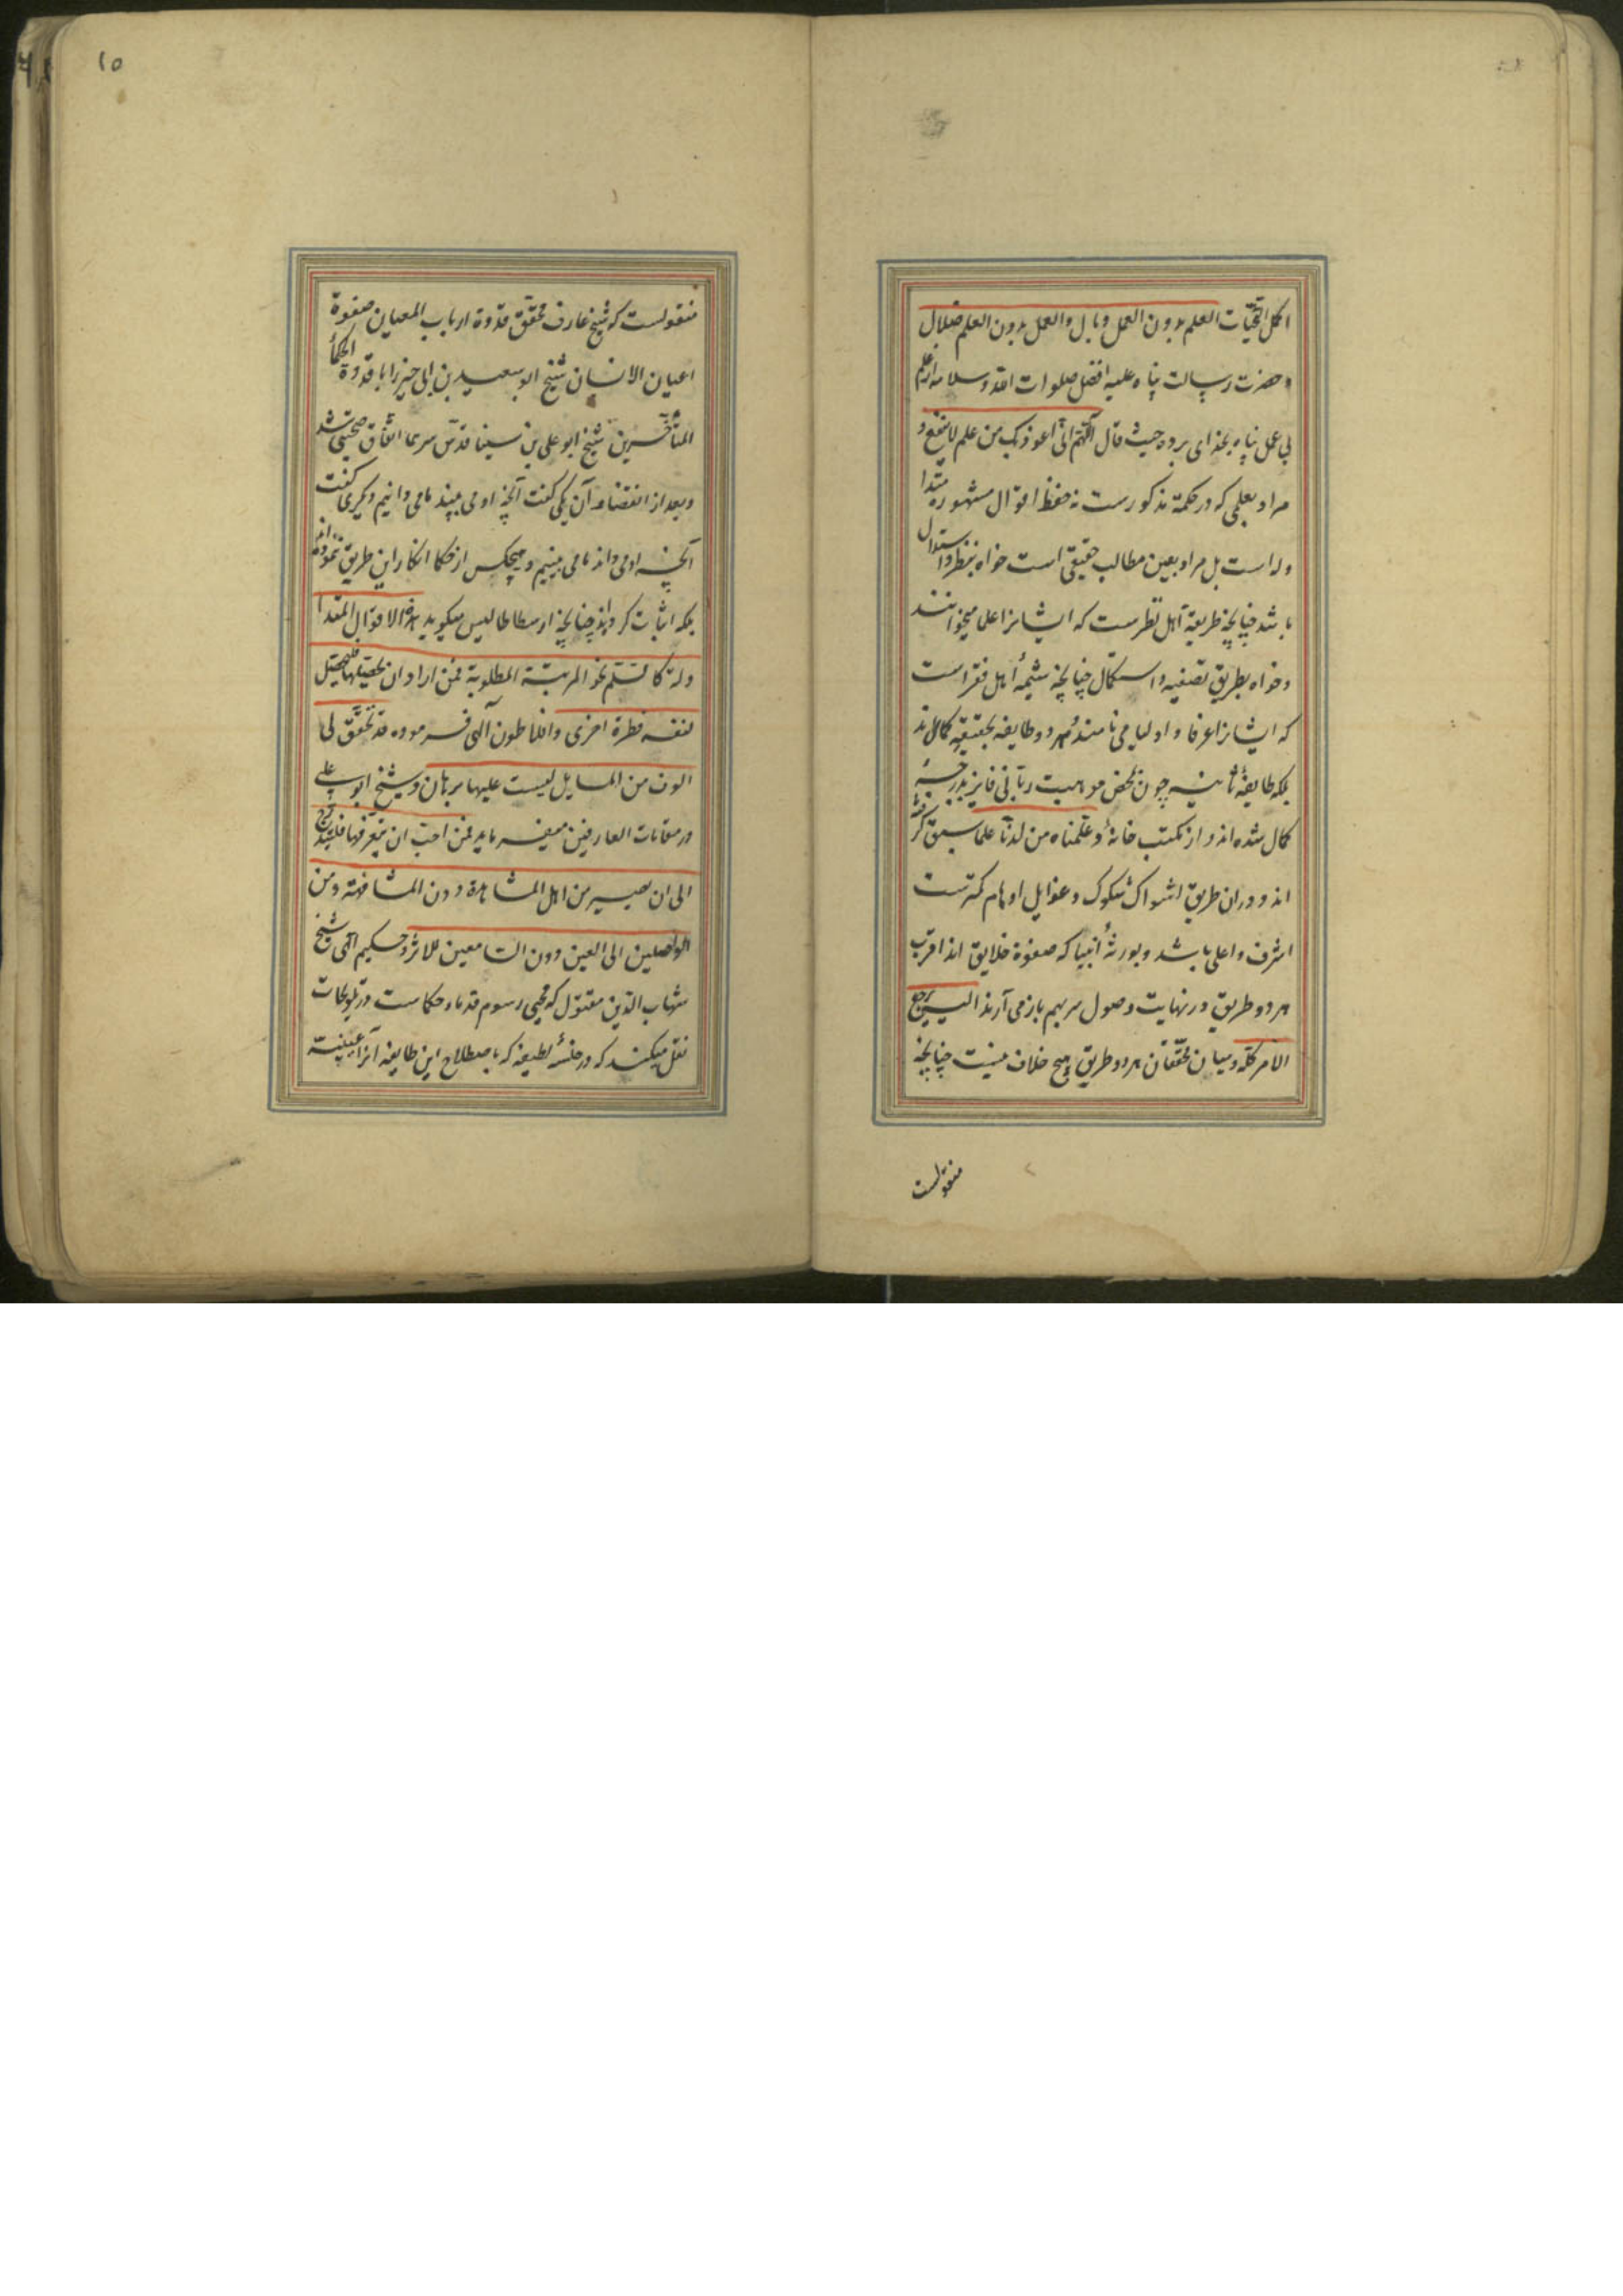 اکمل التحیّات العلم بدون العمل وبال والعمل بدون العلم ضلال
و حضرت رسالت پناه علیه افضل صلوات الله وسلامه از علم
بی عمل پناه بخدای برده حیث قال اللهم انّی اعوذ بک من علم لا ینفع و
مراد بعلمی که در حکمة مذکورست نه حفظ اقوال مشهوره متدا
وله است بل مراد یقین مطالب حقیقی است خواه بنظر و استدلال
باشد چنانچه طریقهٔ اهل نظرست که ایشانرا علما میخوانند
وخواه بطریق تصفیه و استکمال چنانچه شیمهٔ اهل فقر است
که ایشانرا عرفا و اولیا می نامند و هر دو طایفه بحقیقه کمال اند
بلکه طایفهٔ ثانیه چون بمحض موهبت ربّانی فایز بدرجهٔ
کمال شده اند و از مکتب خانهٔ وعلّمناه من لدنّا علما سبق گرفته
اند و دران طریق اشواک شکوک و غوایل اوهام کمترست
اشرف و اعلی باشد و بورثهٔ انبیا که صفوة خلایق اند اقرب
هر دو طریق در نهایت وصول سر بهم باز می آرند الیه یرجع
الامر کلّه و میان محقّقان هر دو طریق هیچ خلاف نیست چنانچه
منقولست
۱۵
منقولست که شیخ عارف محقّق قدوة ارباب العیان صفوة
اعیان الانسان شیخ ابو سعید بن ابی خیر را با قدوة الحکمأ
المتأخّرین شیخ ابو علی بن سینا قدّس سرهما اتّفاق صحبتی شد
وبعد از انقضاء آن یکی گفت آنچه او می بیند ما می دانیم و دیگری گفت
آنچه او می داند ما می بینیم و هیچکس از حکما انکار این طریق ننموده اند
بلکه اثبات کرده اند چنانچه ارسطاطالیس میگوید هذه الاقوال المتدا
ولة کالسّلّم نحو المرتبة المطلوبة فمن اراد ان یحصلها فلیحصل
لنفسه فطرة اخری و افلاطون الهی فرموده قد تحقّق لی
الوف من المسایل لیست علیها برهان و شیخ ابو علی
در مقامات العارفین میفرماید فمن احبّ ان یتعرّفها فلیتدرج
الی ان یصیر من اهل المشاهدة دون المشافهة و من
الواصلین الی العین دون السّامعین للاثر و حکیم الهی شیخ
شهاب الدّین مقتول که محیی رسوم قدماء حکماست در تلویحات
نقل میکند که در خلسهٔ لطیفه که باصطلاح این طایفه آنرا غیبت